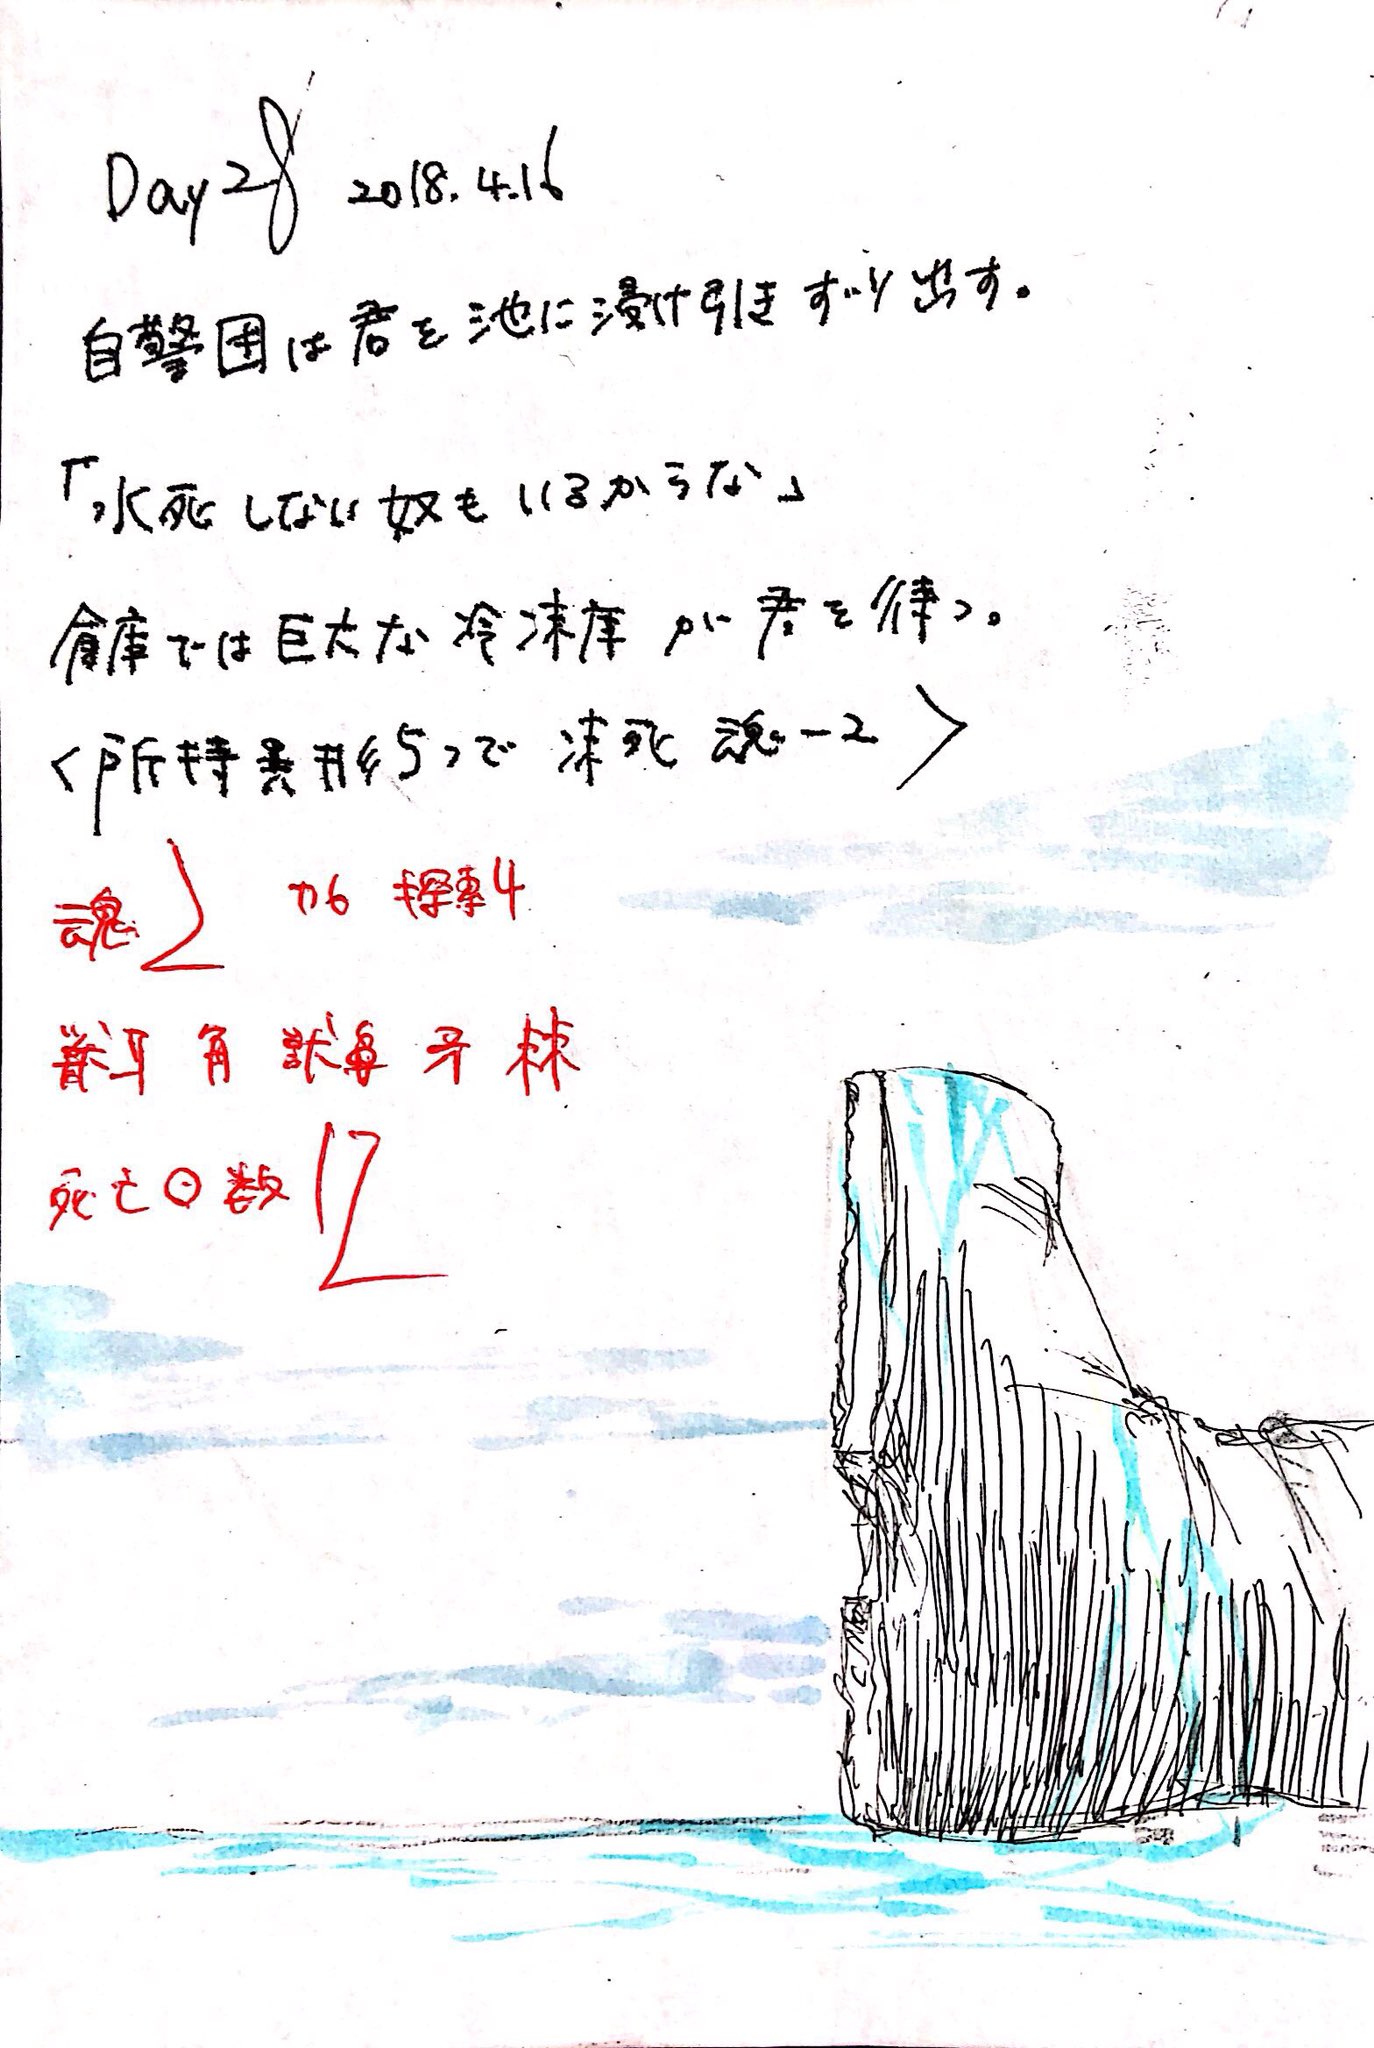 Day28 2018.4.16
自警団は君を池に浸け引きずり出す。
「水死しない奴もいるからな」
倉庫では巨大な冷凍庫が君を待つ。
<所持異形5つで凍死 魂-2>
魂2 力6 探索4
獣耳 角 獣鼻 牙 棘
死亡回数12